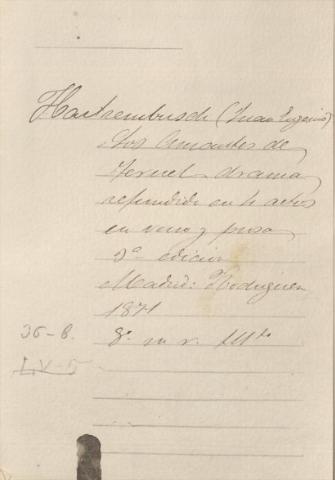 Hartzembusch (Juan Eugenio)
Los Amantes de
Teruel drama
refundido en 4 actos
en verso y prosa
2ª edicion
Madrid: Rodriguez
1871
36-6. 8º m r.
LV-5